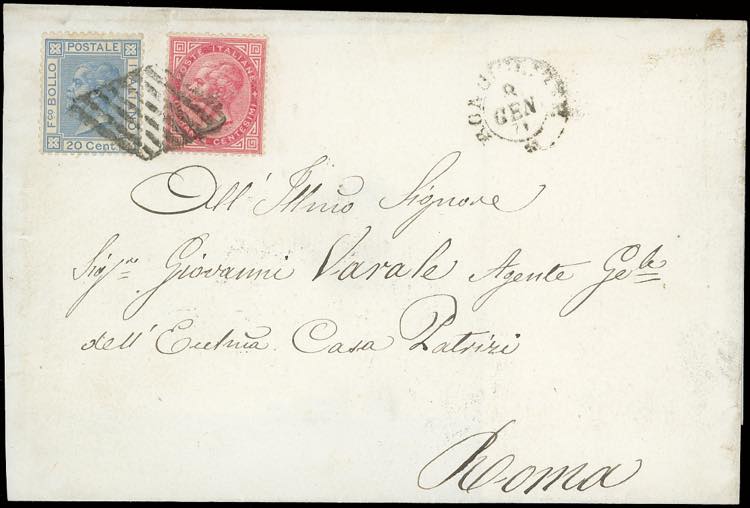 POSTALE
Fco BOLLO
20 Cent.
POSTE ITALIANE
CENTESIMI
8
GEN
71
All' Illmo Signore
Sigre Giovanni Varale Agente Gele
dell' Eccma Casa Patrizi
Roma